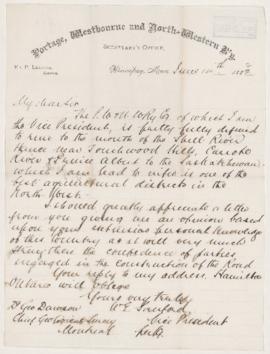 Portage, Westbourne and North-Western R'y.
SECRETARY'S OFFICE,
Winnipeg, Man June 188
My dear Sir
The P.W & N.W Ry Co of which I am
the Vice President, is partly fully defined
to the mouth of the Shell River
Hence near Touchwood Hills, Carrot
River & Prince Albert to the Saskatchewan
which I am lead to is one of the
best agricultural districts in the
North West.
I should greatly appreciate a letter
from you giving me an opinion based
upon your extensive personal knowledge
of this country as it will very much
strengthen the confidence of parties
engaged in the construction of the Road
Your reply to my address. Hamilton
Ontario will oblige
Yours very truly
W E Sanford
Dr Geo Dawson Vice President
Survey
Montreal